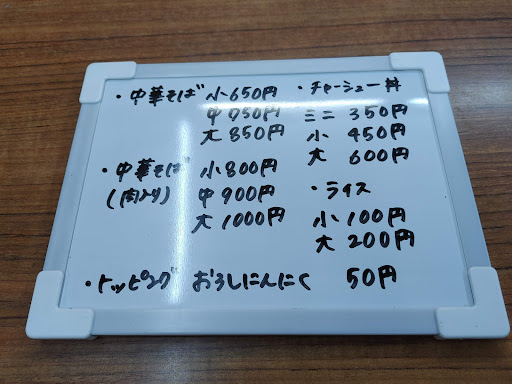 ・中華そば 小 650円
中 750円
大 850円
・中華そば 小 800円
(肉入り) 中 900円
大 1000円
・チャーシュー丼
ミニ 350円
小 450円
大 600円
・ライス
小 100円
大 200円
・トッピング おろしにんにく 50円